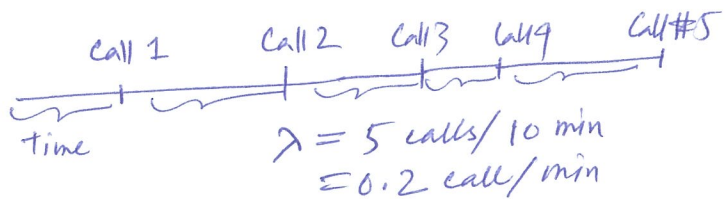 Call 1 Call 2 Call 3 Call 4 Call #5
time
λ = 5 calls / 10 min
= 0.2 call / min